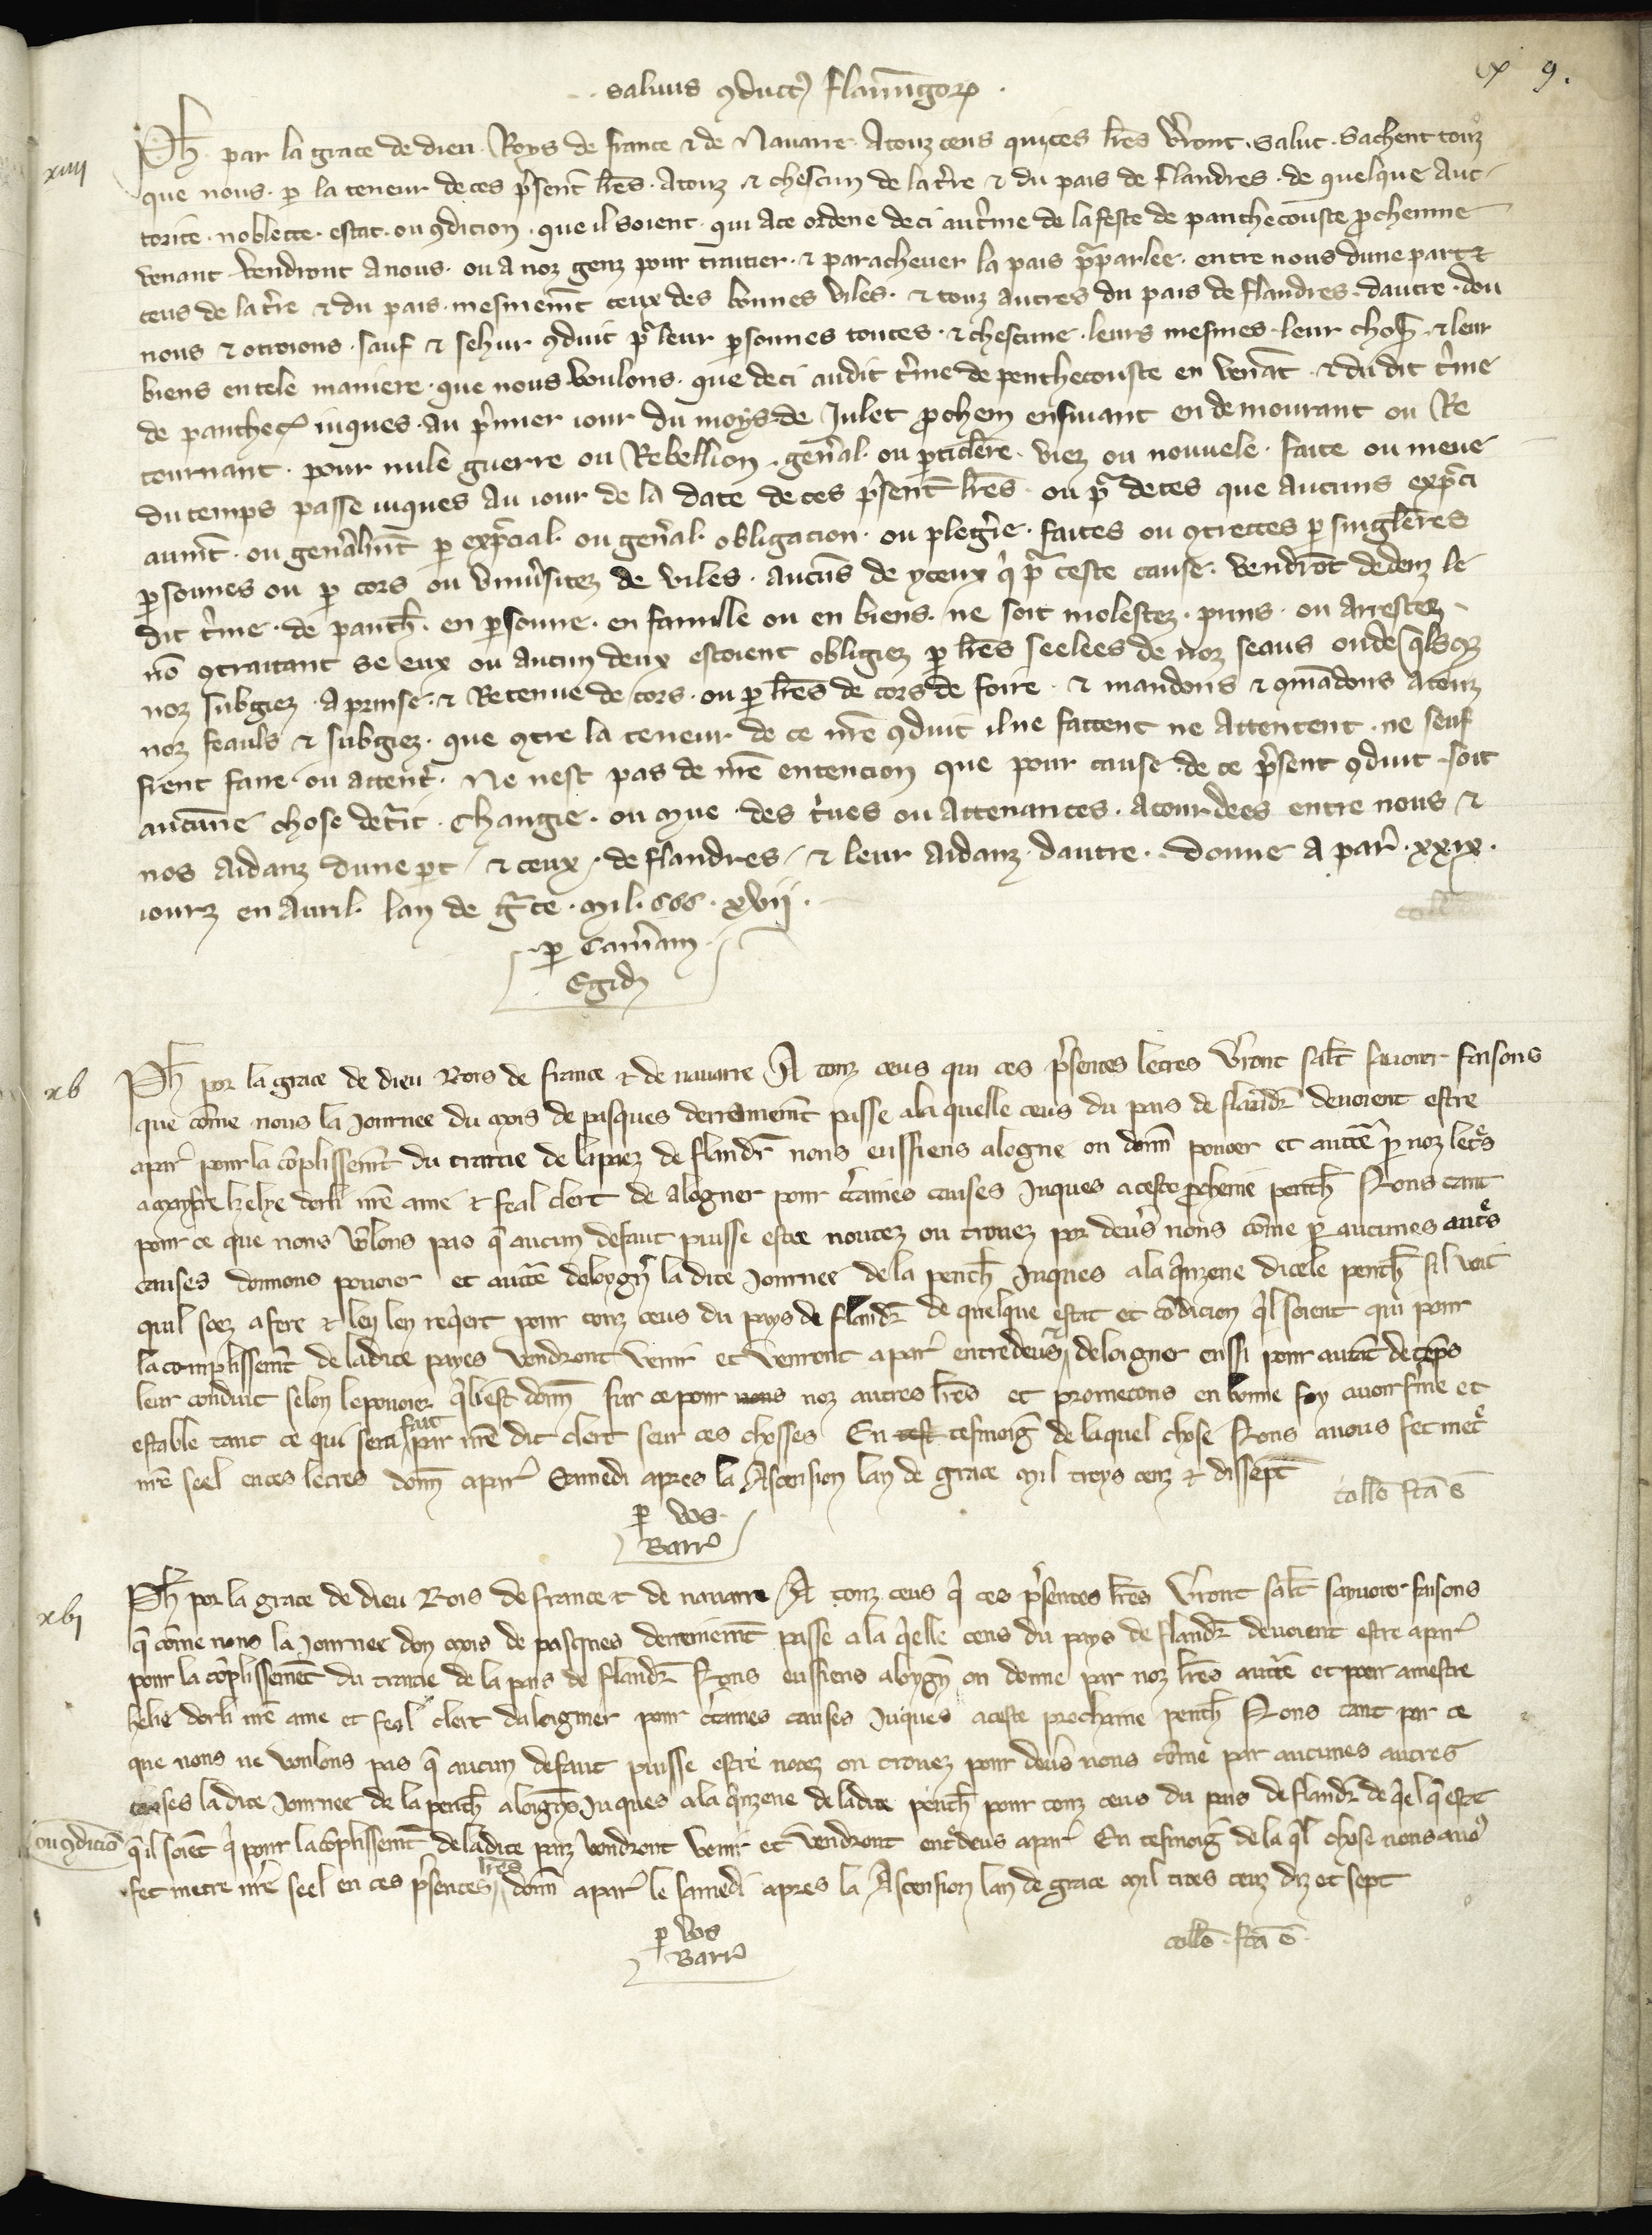 Saluus ꝯduct9 flamingorꝝ
x 9.
xiiii
Ph. par la grace de dieu. Roys de france ⁊ de Nauarre. A touz ceus qui ces lr̃es vr̃ront. salut. Sachent touz
que nous. ꝑ la teneur de ces p̃sent̃ lr̃es. a touz ⁊ chescun de la t̃re ⁊ du pais de flandres. de quelque auc
torite. noblece. estat. ou ꝯdicion. que il soient. qui a ce ordene de ci au t̃me de la feste de panthecouste ꝓchenne
venant vendront a nous. ou a noz genz pour traitier. ⁊ parachever la pais p̃parlee. entre nous dune part ⁊
ceus de la t̃re ⁊ du pais. mesmem̃t ceux des bonnes viles. ⁊ touz autres du pais de flandres. dautre. don
nons ⁊ otroions. sauf ⁊ sehur ꝯduit pr̃ leur ꝑsonnes toutes. ⁊ chescune. leurs mesmes. leur choses. ⁊ leur
biens en tele maniere. que nous voulons. que de ci audit t̃me de penthecouste en venãt. ⁊ du dit t̃me
de panthec̃ iuques au p̃mier iour du moys de Julet ꝓchein ensiuant en demourant ou Re
tournant. pour nule guerre ou Rebellion. gen̄al. ou ꝑticlere. viez ou nouuele. faite ou meue
du temps passe iuques au iour de la date de ces p̃sent̃ lr̃es. ou pr̃ detes que aucuns exp̃ci
aumt̃. ou gen̄almt̃ ꝑ exp̃cial. ou gen̄al. obligacion. ou plegerie. faites ou ꝯtrettes ꝑ singleres
ꝑsonnes ou ꝑ cors ou vniũsitez de viles. aucũs de yceux q̃ pr̃ ceste cause. vendrõt dedenz le
dit t̃me. de panth̃. en ꝑsonne. en famille ou en biens. ne soit molestez. prins. ou arrestez.
nõ ꝯtraitant se eux ou aucun deux estoient obligiez ꝑ lr̃es seelees de noz seaus ou de q̃lsqz
noz subgiez. a prinse. ⁊ Retenue de cors. ou ꝑ lr̃es de cors de foire. ⁊ mandons ⁊ ꝯmãdons a touz
noz feauls ⁊ subgiez. que ꝯtre la teneur de ce nr̃e ꝯduit il ne facent ne attentent. ne seuf
frent faire. ou attent̃. Ne nest pas de nr̃e entencion que pour cause de ce p̃sent ꝯduit. soit
aucune chose detrait. changie. ou mue. des t̃ues ou attenances. acourdees entre nous ⁊
nos aidanz dune ꝑt / ⁊ ceux. de flandres / ⁊ leur aidanz. dautre. Donne a par̃. xxix.
iourz en auril. lan de gr̃ce. mil. ccc. xvii.
ꝑ Cam̃am
Egid̃
xv
Ph par la grace de dieu Rois de france ⁊ de nauarre A touz ceus qui ces p̃sentes letres vr̃ront sal̃t sauoir faisons
que cõme nous la Journee du mois de pasques derreanemẽt passe a la quelle ceus du pais de flandr̃ deuoient estre
a par̃ pour la cõplissem̃t du traitie de la paiz de flandr̃ nous eussiens alogne ou donñ pouoer et auct̃e ꝑ noz letr̃s
a maystre helye dorli nr̃e ame ⁊ feal clerc de alogner pour c̃taines causes Juques a ceste ꝓcheine penth̃ Nous tant
pour ce que nous volons pas q̃ aucun defaut puisse estre noutez ou trouez por deũs nous cõme ꝑ aucunes autr̃s
causes donnons pouoier et auct̃e deloygn̄ la dite Journee de la penth̃ Juques a la q̃nzene dicele penth̃ sil voit
quil soiez a fere ⁊ len len req̃ert pour touz ceus du pays de flandr̃ de quelque estat et cõdicion q̃l soient qui pour
la complissem̃t de la dite payes vendront venir et venront a par̃ entredeus deloigner eussi pour autãt de tẽps
leur conduit selon le pouoier q̃ li est donñ sur ce pour noz autres lr̃es et prometons en bonne foy auoir ferme et
estable tant ce qui sera fait par nr̃e dit clerc seur ces choses En tesmoig̃ de laquel chose Nous auons fet metre
nr̃e seel en ces letres donñ a par̃ Samedi apres la Ascension lan de grace mil troys cenz ⁊ dissept
collõ fc̃a ẽ
ꝑ vos.
Barr̃
xvi
Ph por la grace de dieu Rois de france ⁊ de nauarre A touz ceus q̃ ces p̃sentes lr̃es vr̃ront sal̃t sauuoir faisons
q̃ cõme nous la Journee don mois de pasques derreniem̃t passe a la q̃elle ceus du pays de flandr̃ deuoient estre a par̃
pour la cõplissem̃t du traitie de la pais de flandr̃ Nous eussiens aloygn̄ ou donne par noz lr̃es auct̃e et pooir a mestre
helie dorli nr̃e ame et feal clerc daloigner pour c̃taines causes Juques a ceste prochaine penth̃ Nous tant por ce
que nous ne voulons pas q̃ aucun defaut puisse estre notez ou trouez pour deũs nous cõme par aucunes autres
causes la dite Journee de la penth̃ aloignõs Juques a la q̃nzene de la dite penth̃ pour touz ceus du pais de flandr̃ de q̃el q̃ estat
ou ꝯdiciõ q̃ il soiẽt q̃ pour la cõplissem̃t de la dite paiz vendront venir et vendront ent̃deus a par̃ En tesmoig̃ de la q̃l chose nous auõs
fet metre nr̃e seel en ces p̃sentes lr̃es donñ a par̃ le samedi apres la Ascension lan de grace mil trois cenz diz et sept
collõ. fc̃a ẽ.
ꝑ vos
Barr̃